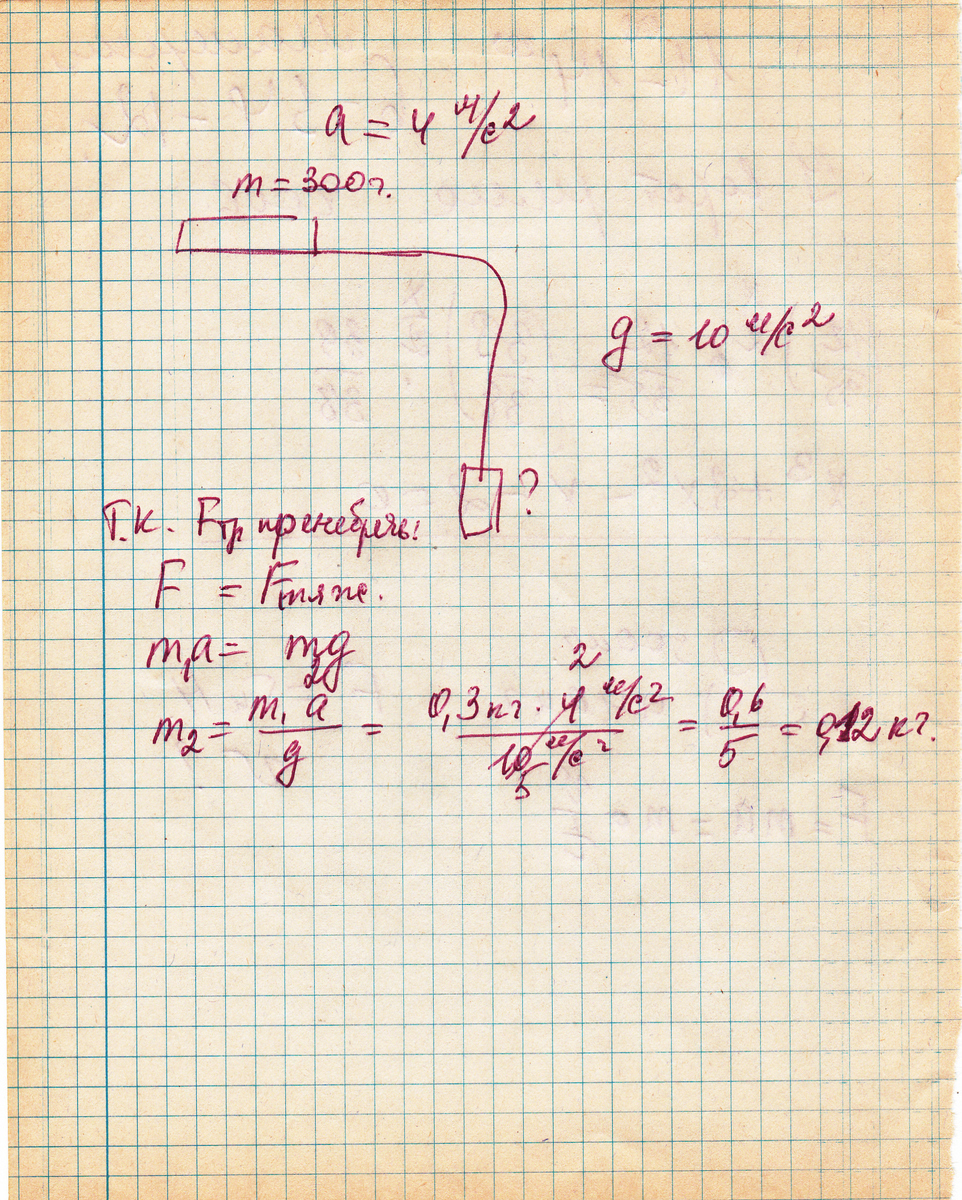 a = 4 м/с2
m = 300г.
g = 10 м/с2
?
Т.к. Fтр пренебречь:
F = Fтяж.
m1a = m2g
m2 = m1a/g = 0,3кг · 4 м/с2 / 10 м/с2 = 0,6/5 = 0,12 кг.
2
5